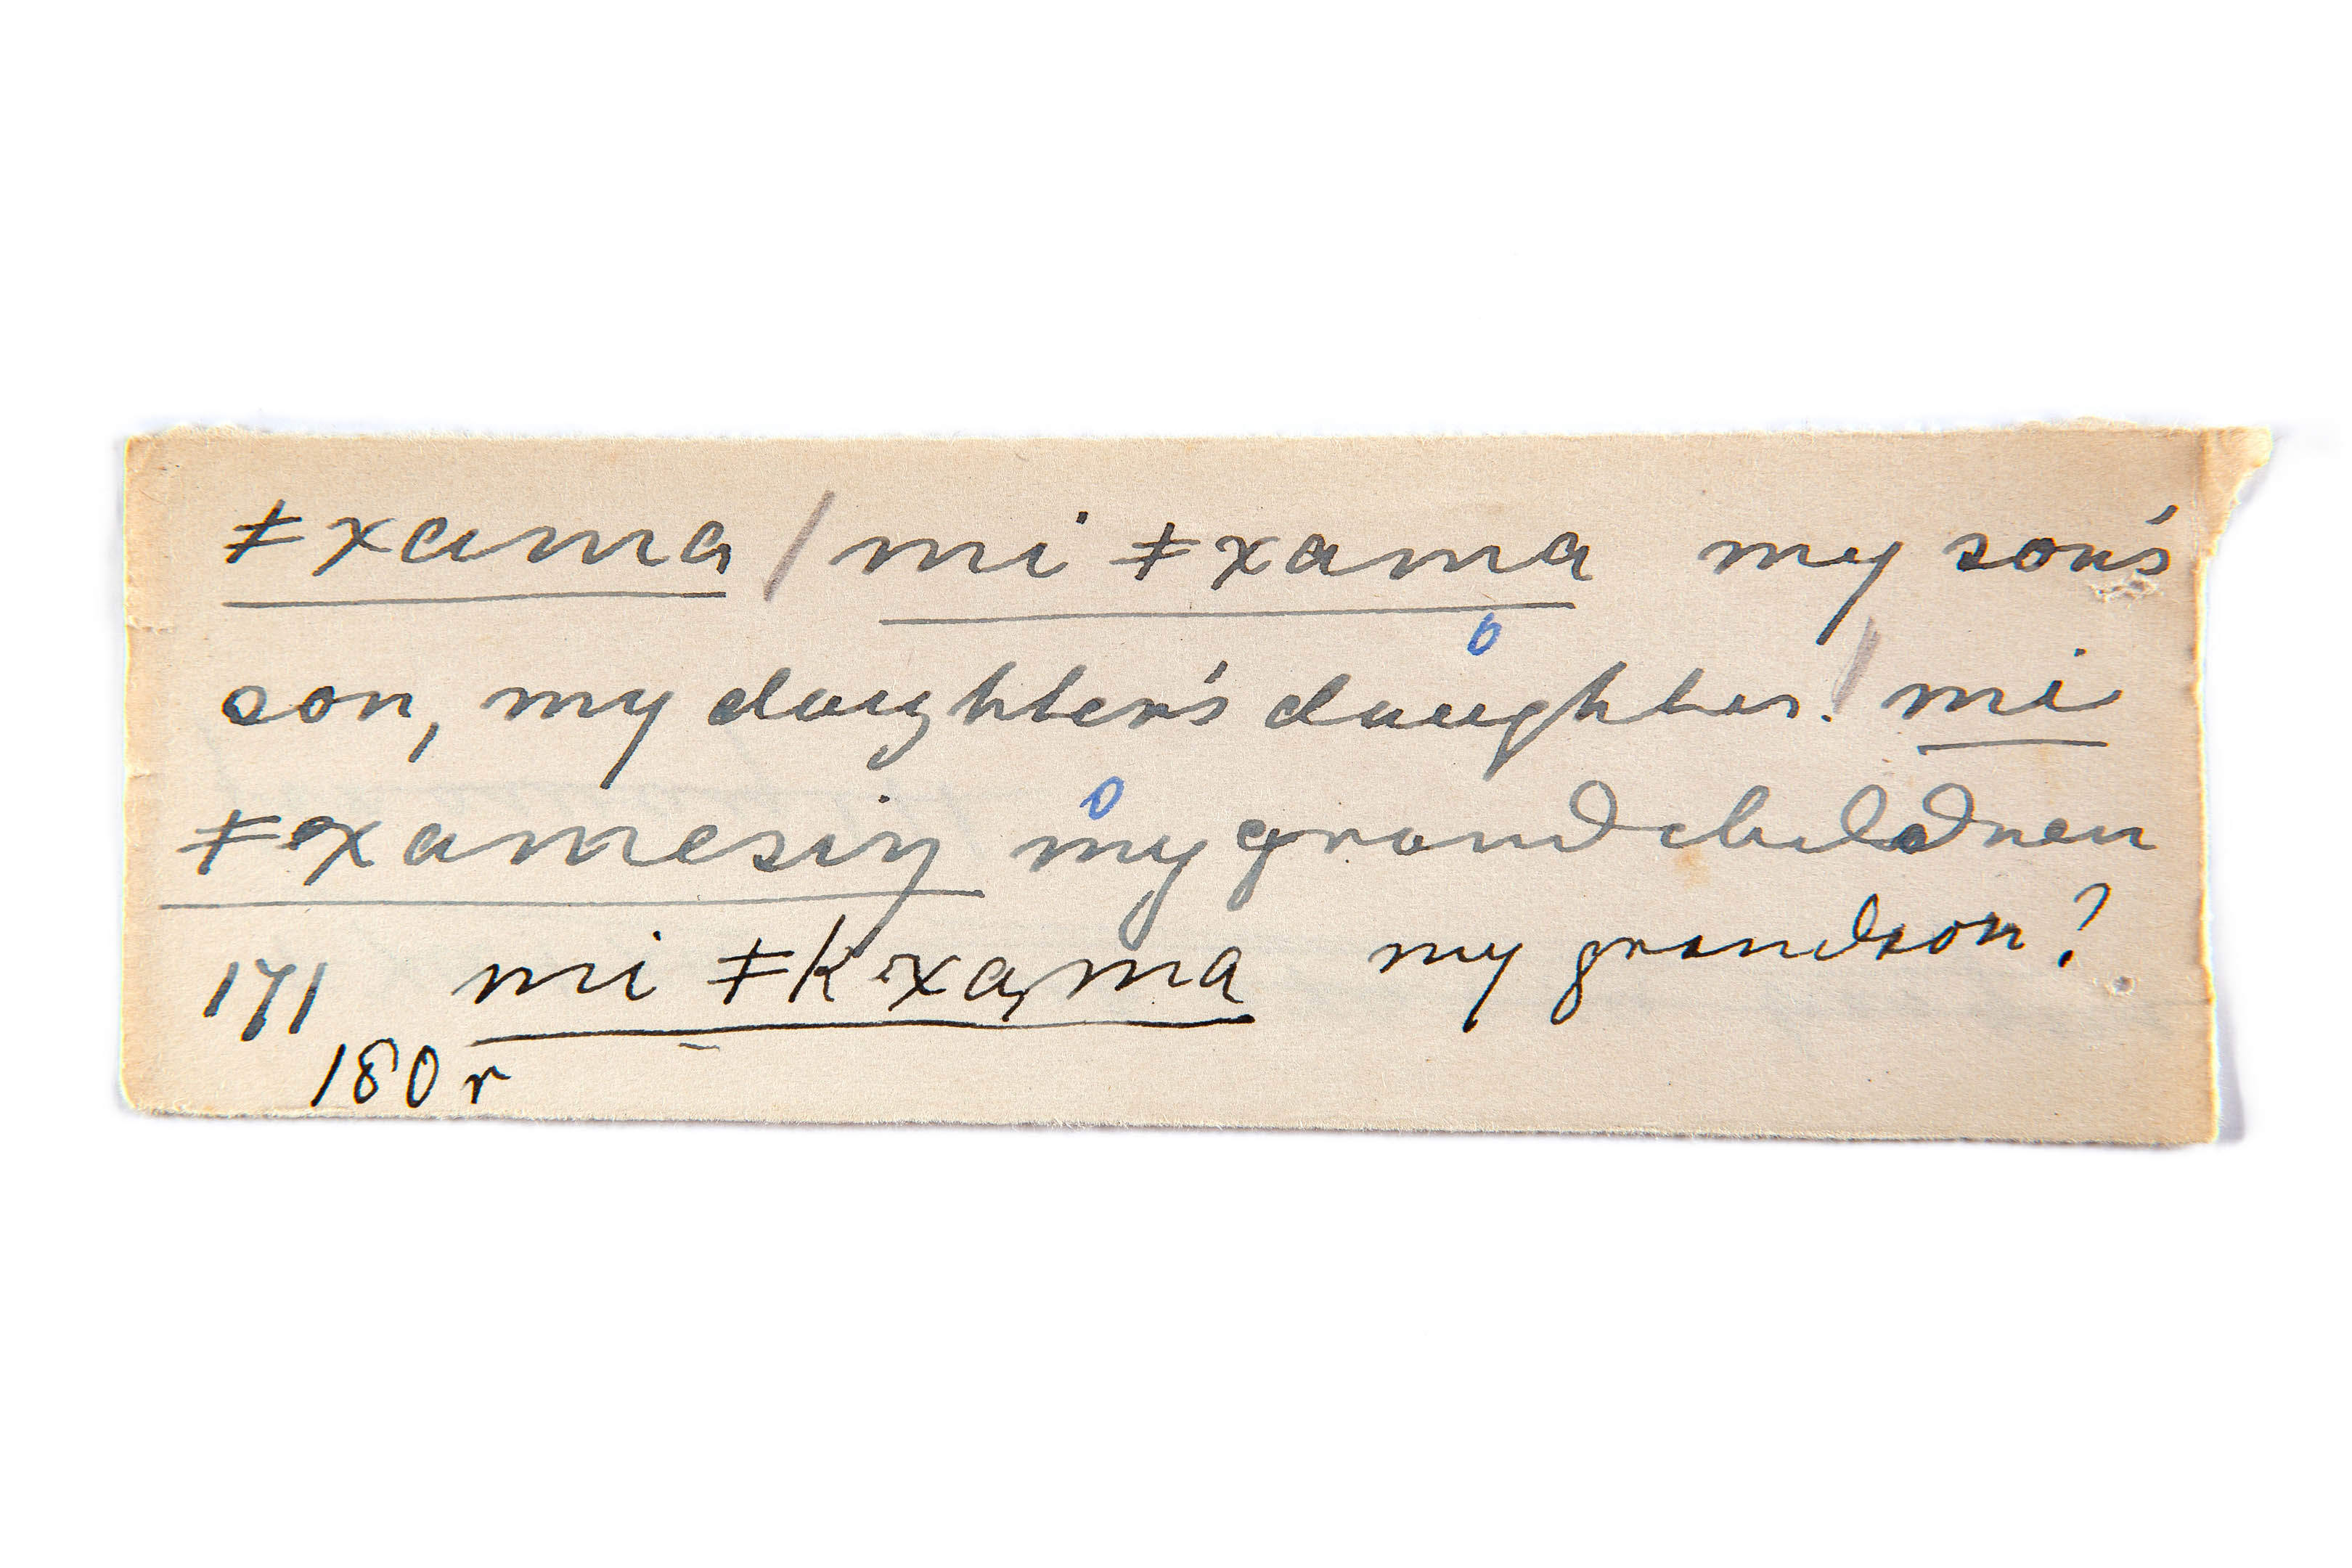 ǂxama / mi ǂxama my son's
son, my daughter's daughter. / mi
ǂxamesiŋ my grandchildren
171 mi ǂkxa̧ma my grandson?
180 r